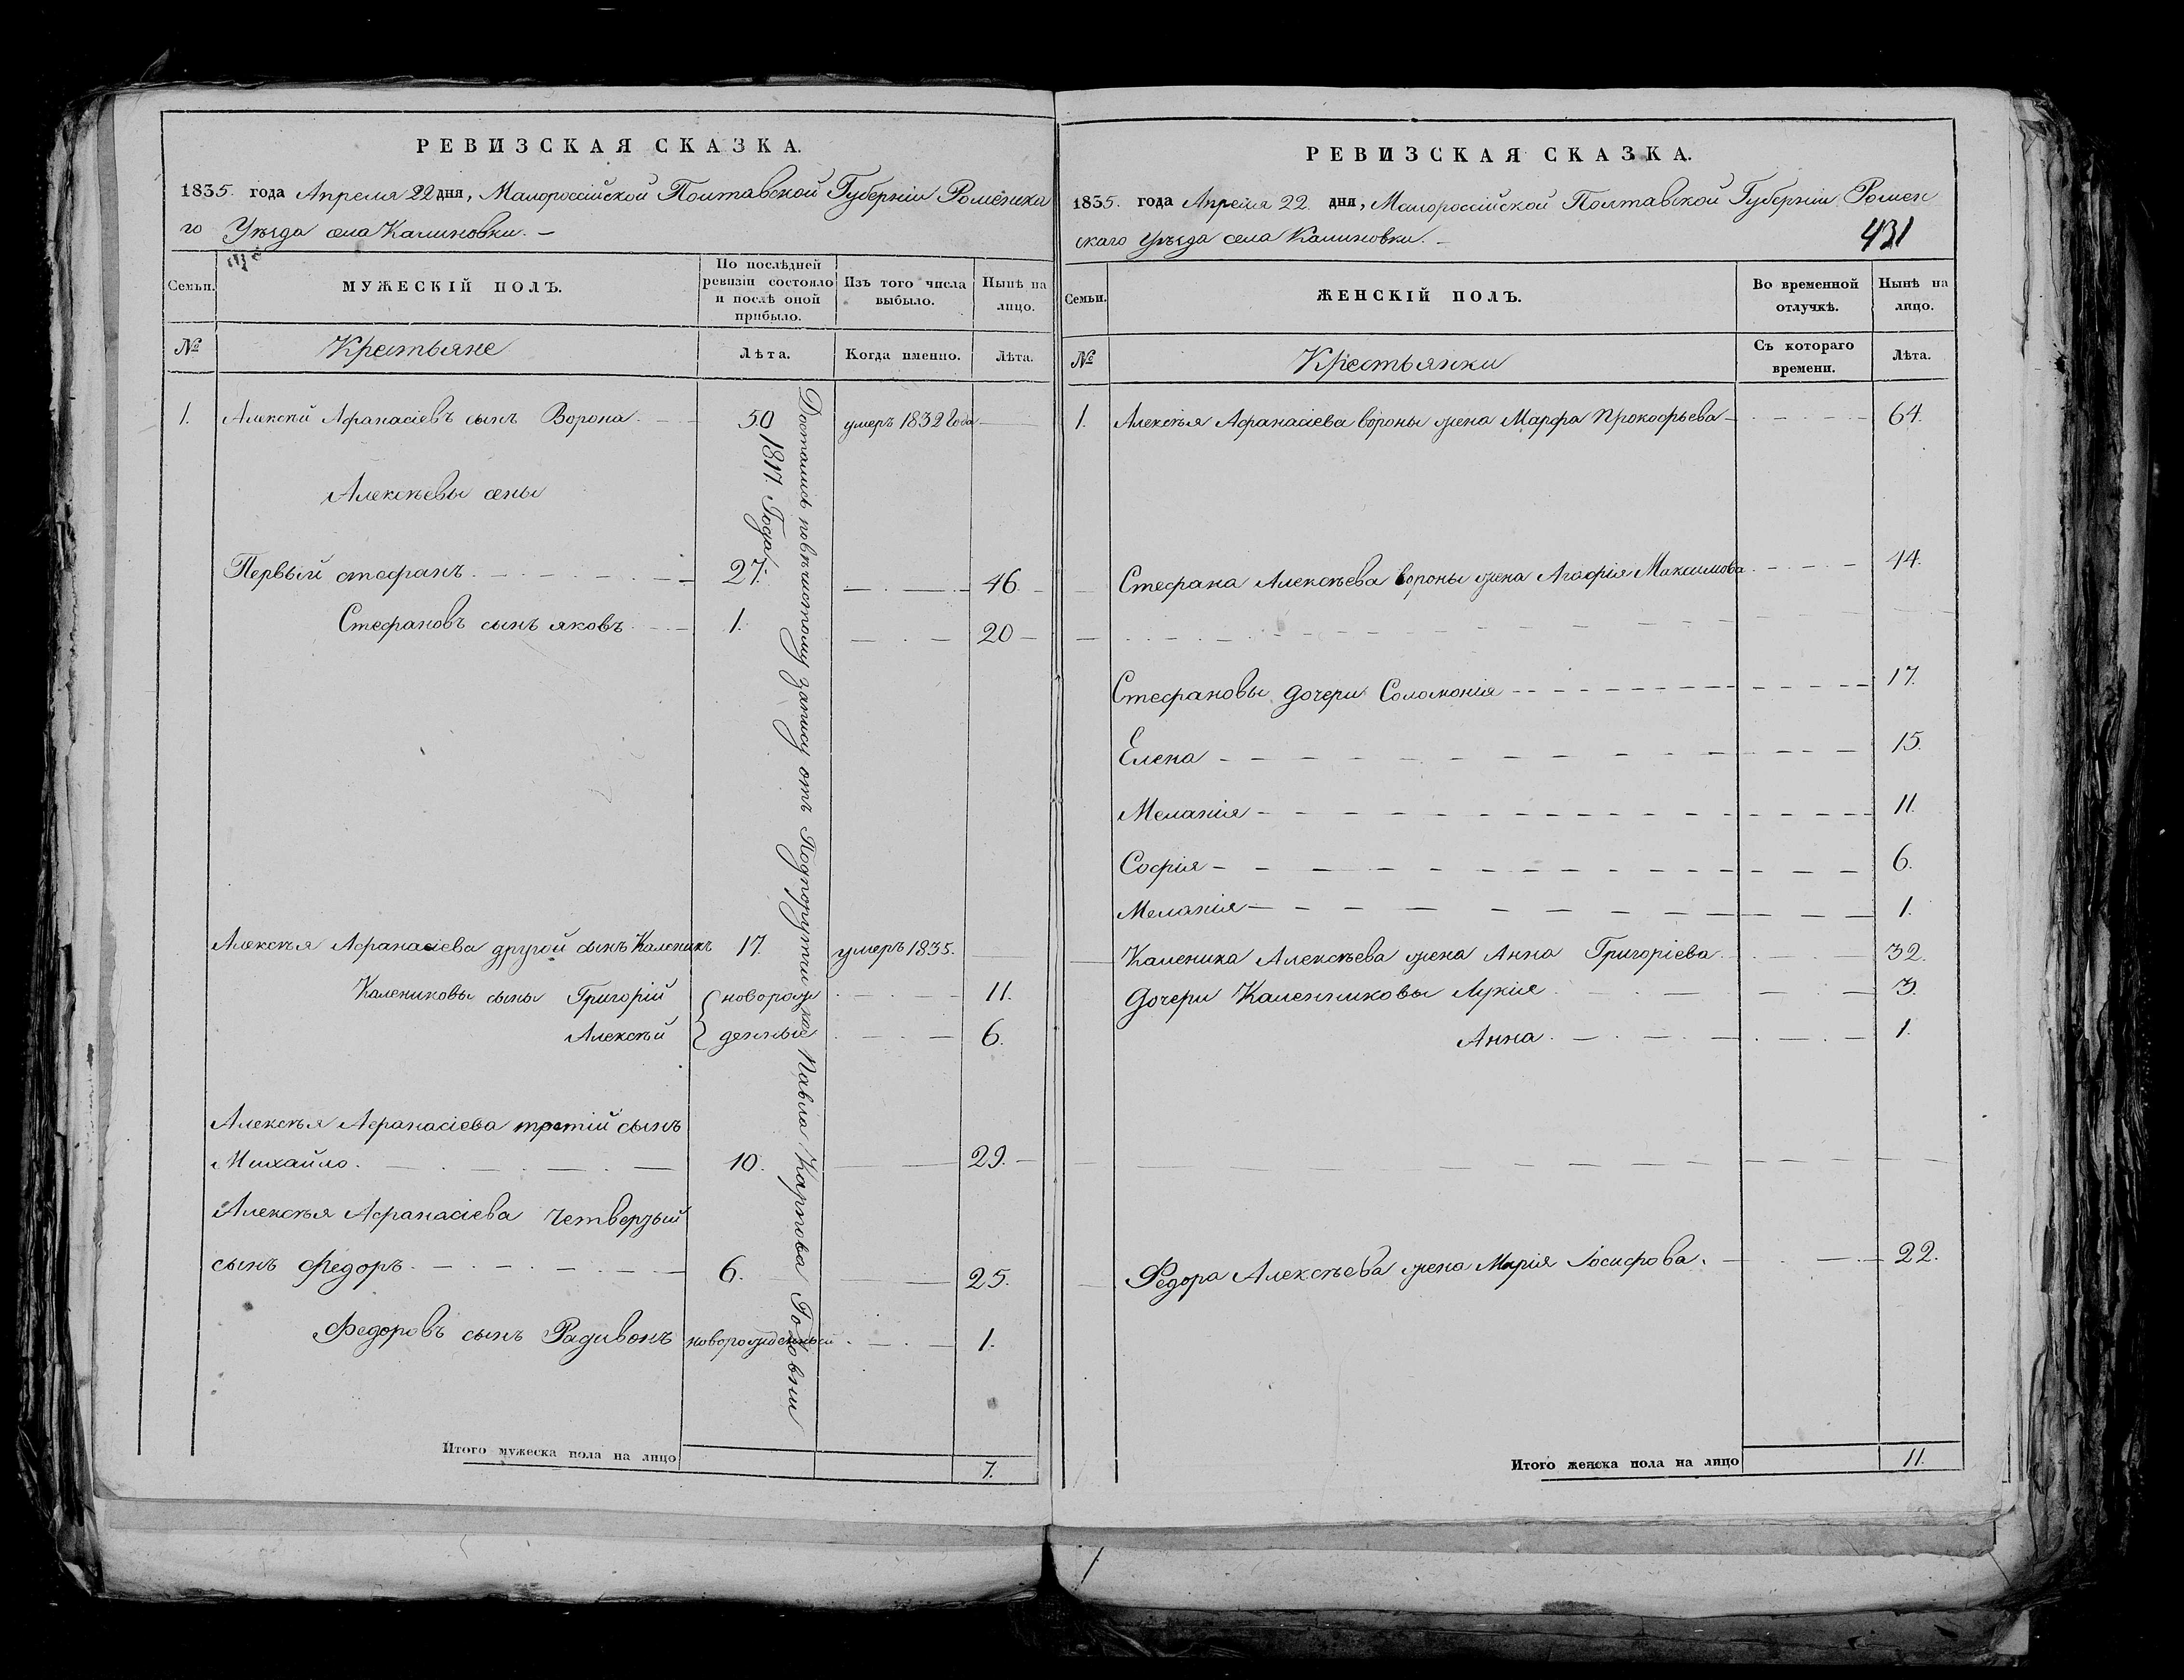 РЕВИЗСКАЯ СКАЗКА.
1835. года Апреля 22 дня, Малороссійской Полтавской Губерніи Роменска
го Уѣзда села Калиновки. –
Семьи.
МУЖЕСКІЙ ПОЛЪ.
По послѣдней
ревизіи состояло
и послѣ оной
прибыло.
Изъ того числа
выбыло.
Нынѣ на
лицо.
№
Крестьяне
Лѣта.
Когда именно.
Лѣта.
1. Алексѣй Афанасіевъ сынъ Ворона. 50 умеръ 1832 года
Алексѣевы сены
Первый стефанъ. 27. 46
Стефановъ сынъ яковъ 1. 20
Алексѣя Афанасіева другой сынъ Каленикъ 17. умеръ 1835.
Калениковы сыны Григорій новорож 11.
Алексѣй денные 6.
Алексѣя Афанасіева третій сынъ
Михайло. 10. 29.
Алексѣя Афанасіева четвертый
сынъ Федоръ. 6. 25.
Федоровъ сынъ Радивонъ новорожденный 1.
Достались по купчему запису отъ Подпоручика Павла Карпова Головни
1817. Года
Итого мужеска пола на лицо 7.
РЕВИЗСКАЯ СКАЗКА.
1835. года Апреля 22. дня, Малороссійской Полтавской Губерніи Ромен
скаго Уѣзда села Калиновки. –
431
Семьи.
ЖЕНСКІЙ ПОЛЪ.
Во временной
отлучкѣ.
Нынѣ на
лицо.
№
Крестьянки
Съ котораго
времени.
Лѣта.
1. Алексѣя Афанасіева вороны жена Марфа Прокофьева 64.
Стефана Алексѣева вороны жена Агафія Максимова 44.
Стефановы дочери Соломонія 17.
Елена 15.
Меланія 11.
Софія 6.
Меланія 1.
Каленика Алексѣева жена Анна Григоріева. 32.
Дочери Калениковы Лукія 3.
Анна. 1.
Федора Алексѣева жена Марія Іосифова. 22.
Итого женска пола на лицо 11.